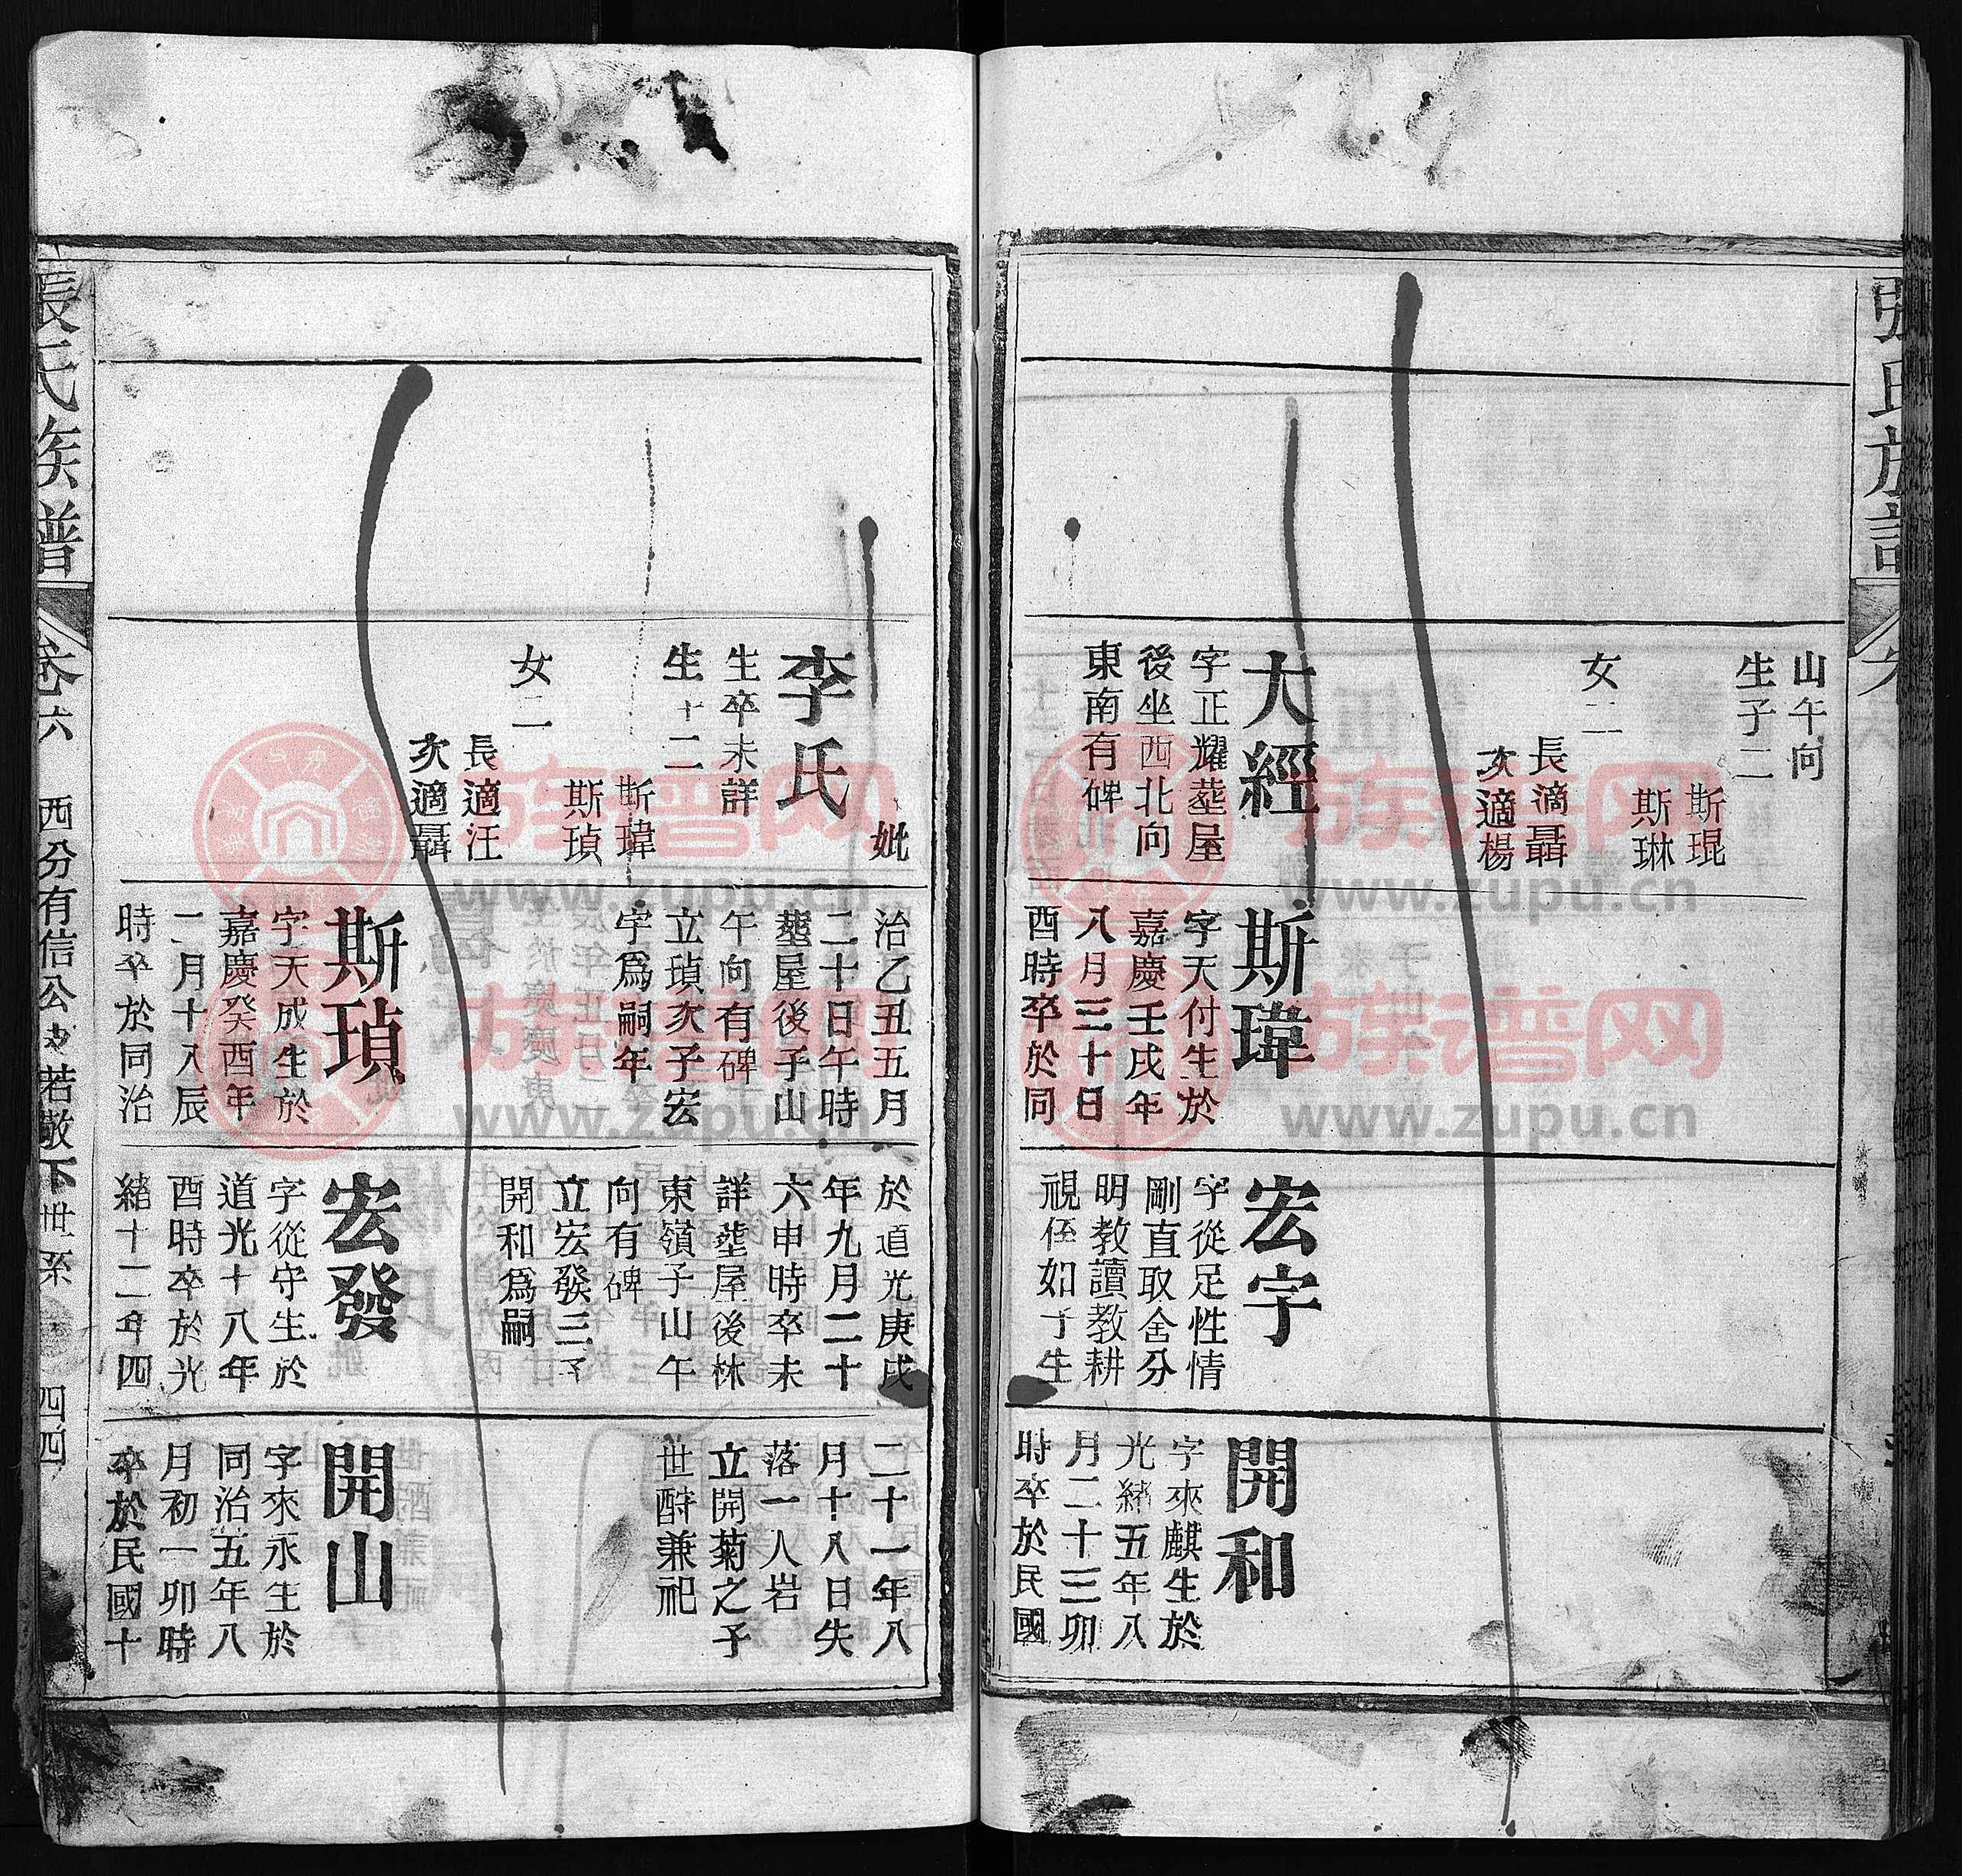 張氏族譜
山午向
生子二
斯琨
斯琳
女二
長適聶
次適楊
大經
字正耀塟屋
後坐西北向
東南有碑
斯瑋
字天付生於
嘉慶壬戌年
八月三十日
酉時卒於同
宏字
字從足性情
剛直取舍分
明教讀教耕
視侄如子生
開和
字來麒生於
光緒五年八
月二十三卯
時卒於民國
妣
李氏
生卒未詳
生子二
斯瑋
斯瑱
女二
長適汪
次適聶
治乙丑五月
二十日午時
塟屋後子山
午向有碑
立瑱次子宏
字爲嗣年
斯瑱
字天成生於
嘉慶癸酉年
二月十八辰
時卒於同治
於道光庚戌
年九月二十
六申時卒未
詳塟屋後林
東嶺子山午
向有碑
立宏發三子
開和爲嗣
宏發
字從守生於
道光十八年
酉時卒於光
緒十二年四
二十一年八
月十八日失
落一人岩
立開菊之子
世酧兼祀
開山
字來永生於
同治五年八
月初一卯時
卒於民國十
張氏族譜
卷六
西分有信公房若敬下世系
四四
族譜网
www.zupu.cn
族譜网
www.zupu.cn
族譜网
www.zupu.cn
族譜网
www.zupu.cn